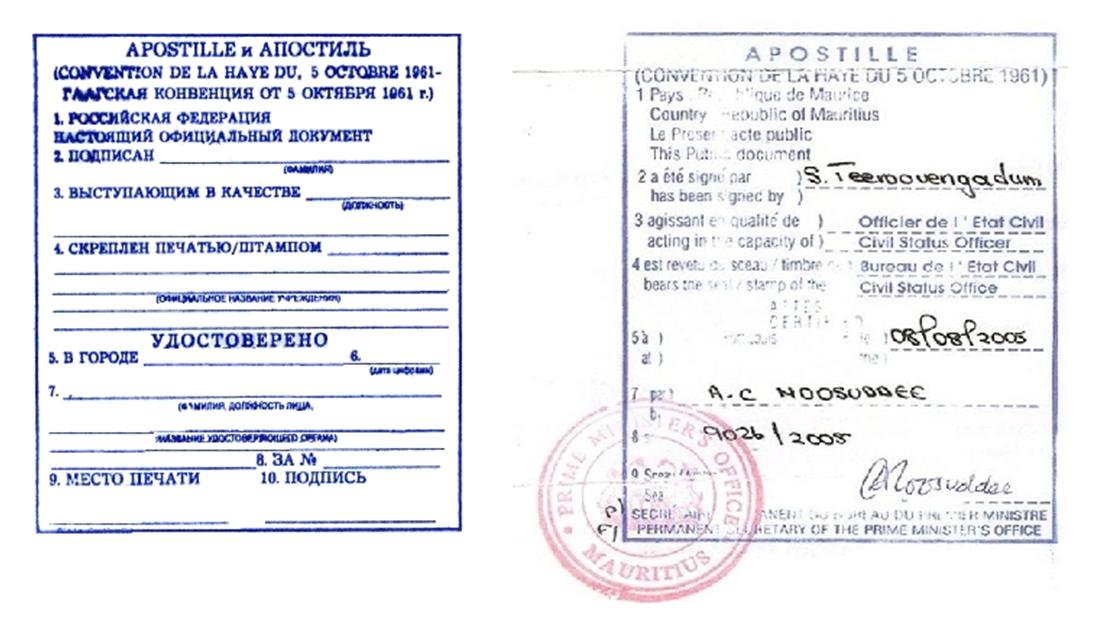 APOSTILLE и АПОСТИЛЬ
(CONVENTION DE LA HAYE DU, 5 OCTOBRE 1961-
ГААГСКАЯ КОНВЕНЦИЯ ОТ 5 ОКТЯБРЯ 1961 г.)
1. РОССИЙСКАЯ ФЕДЕРАЦИЯ
НАСТОЯЩИЙ ОФИЦИАЛЬНЫЙ ДОКУМЕНТ
2. ПОДПИСАН
(ФАМИЛИЯ)
3. ВЫСТУПАЮЩИМ В КАЧЕСТВЕ
(ДОЛЖНОСТЬ)
4. СКРЕПЛЕН ПЕЧАТЬЮ/ШТАМПОМ
(ОФИЦИАЛЬНОЕ НАЗВАНИЕ УЧРЕЖДЕНИЯ)
УДОСТОВЕРЕНО
5. В ГОРОДЕ 6.
(дата цифрами)
7.
(ФАМИЛИЯ, ДОЛЖНОСТЬ ЛИЦА,
НАЗВАНИЕ УДОСТОВЕРЯЮЩЕГО ОРГАНА)
8. ЗА №
9. МЕСТО ПЕЧАТИ 10. ПОДПИСЬ
APOSTILLE
(CONVENTION DE LA HAYE DU 5 OCTOBRE 1961)
1 Pays République de Maurice
Country Republic of Mauritius
Le Present acte public
This Public document
2 a été signé par ) S. Teeroovengadum
has been signed by )
3 agissant en qualité de ) Officier de l'Etat Civil
acting in the capacity of ) Civil Status Officer
4 est revetu du sceau / timbre de Bureau de l'Etat Civil
bears the seal / stamp of the Civil Status Office
5 à ) le ) 08/08/2005
at ) the )
7 par ) A-C NOOSUDDEE
8 9026 / 2005
9 Sceau
Sea
Noosuddee
SECRETAIRE PERMANENT DU BUREAU DU PREMIER MINISTRE
PERMANENT SECRETARY OF THE PRIME MINISTER'S OFFICE
PRIME MINISTER'S OFFICE
MAURITIUS